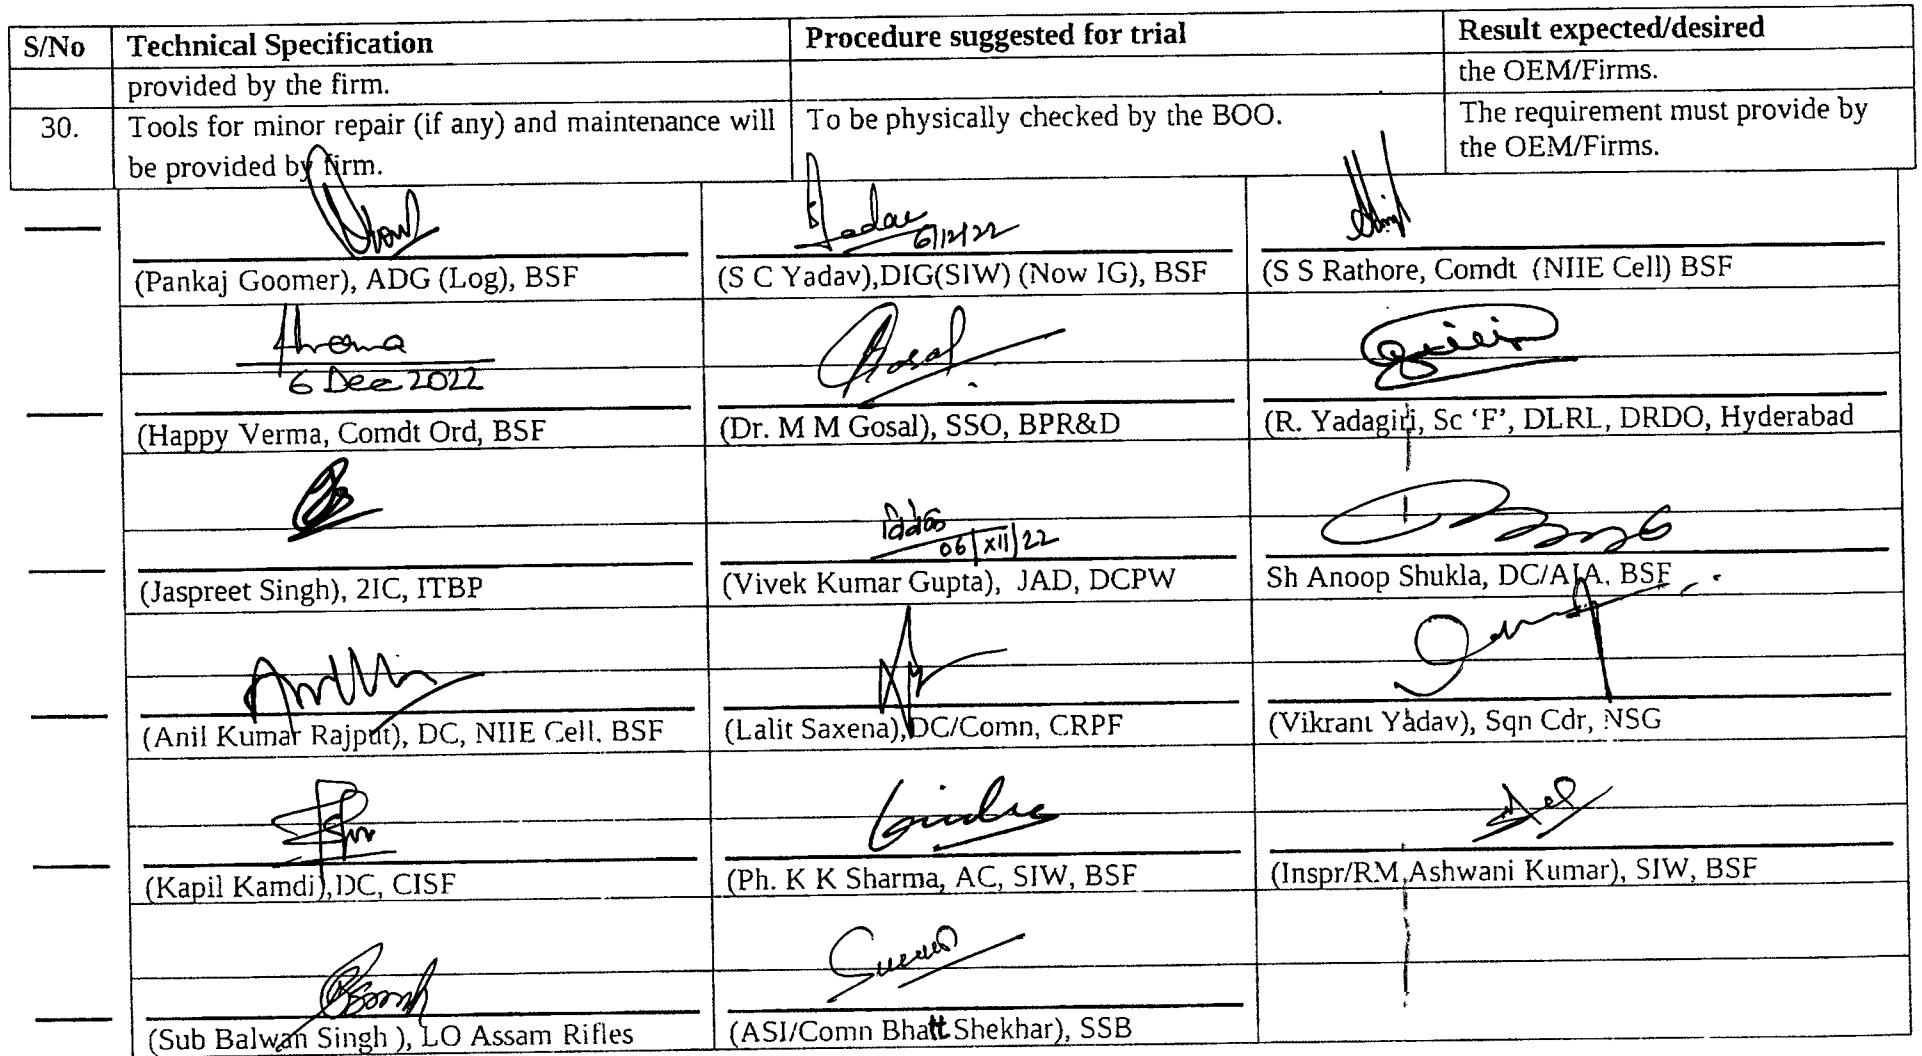 S/No Technical Specification Procedure suggested for trial Result expected/desired
provided by the firm. the OEM/Firms.
30. Tools for minor repair (if any) and maintenance will To be physically checked by the BOO. The requirement must provide by
be provided by firm. the OEM/Firms.
6/12/22
(Pankaj Goomer), ADG (Log), BSF (S C Yadav),DIG(SIW) (Now IG), BSF (S S Rathore, Comdt (NIIE Cell) BSF
6 Dec 2022
(Happy Verma, Comdt Ord, BSF (Dr. M M Gosal), SSO, BPR&D (R. Yadagiri, Sc ‘F’, DLRL, DRDO, Hyderabad
06/XII/22
(Jaspreet Singh), 2IC, ITBP (Vivek Kumar Gupta), JAD, DCPW Sh Anoop Shukla, DC/AJA, BSF
(Anil Kumar Rajput), DC, NIIE Cell. BSF (Lalit Saxena),DC/Comn, CRPF (Vikrant Yadav), Sqn Cdr, NSG
(Kapil Kamdi),DC, CISF (Ph. K K Sharma, AC, SIW, BSF (Inspr/RM Ashwani Kumar), SIW, BSF
(Sub Balwan Singh ), LO Assam Rifles (ASI/Comn Bhatt Shekhar), SSB